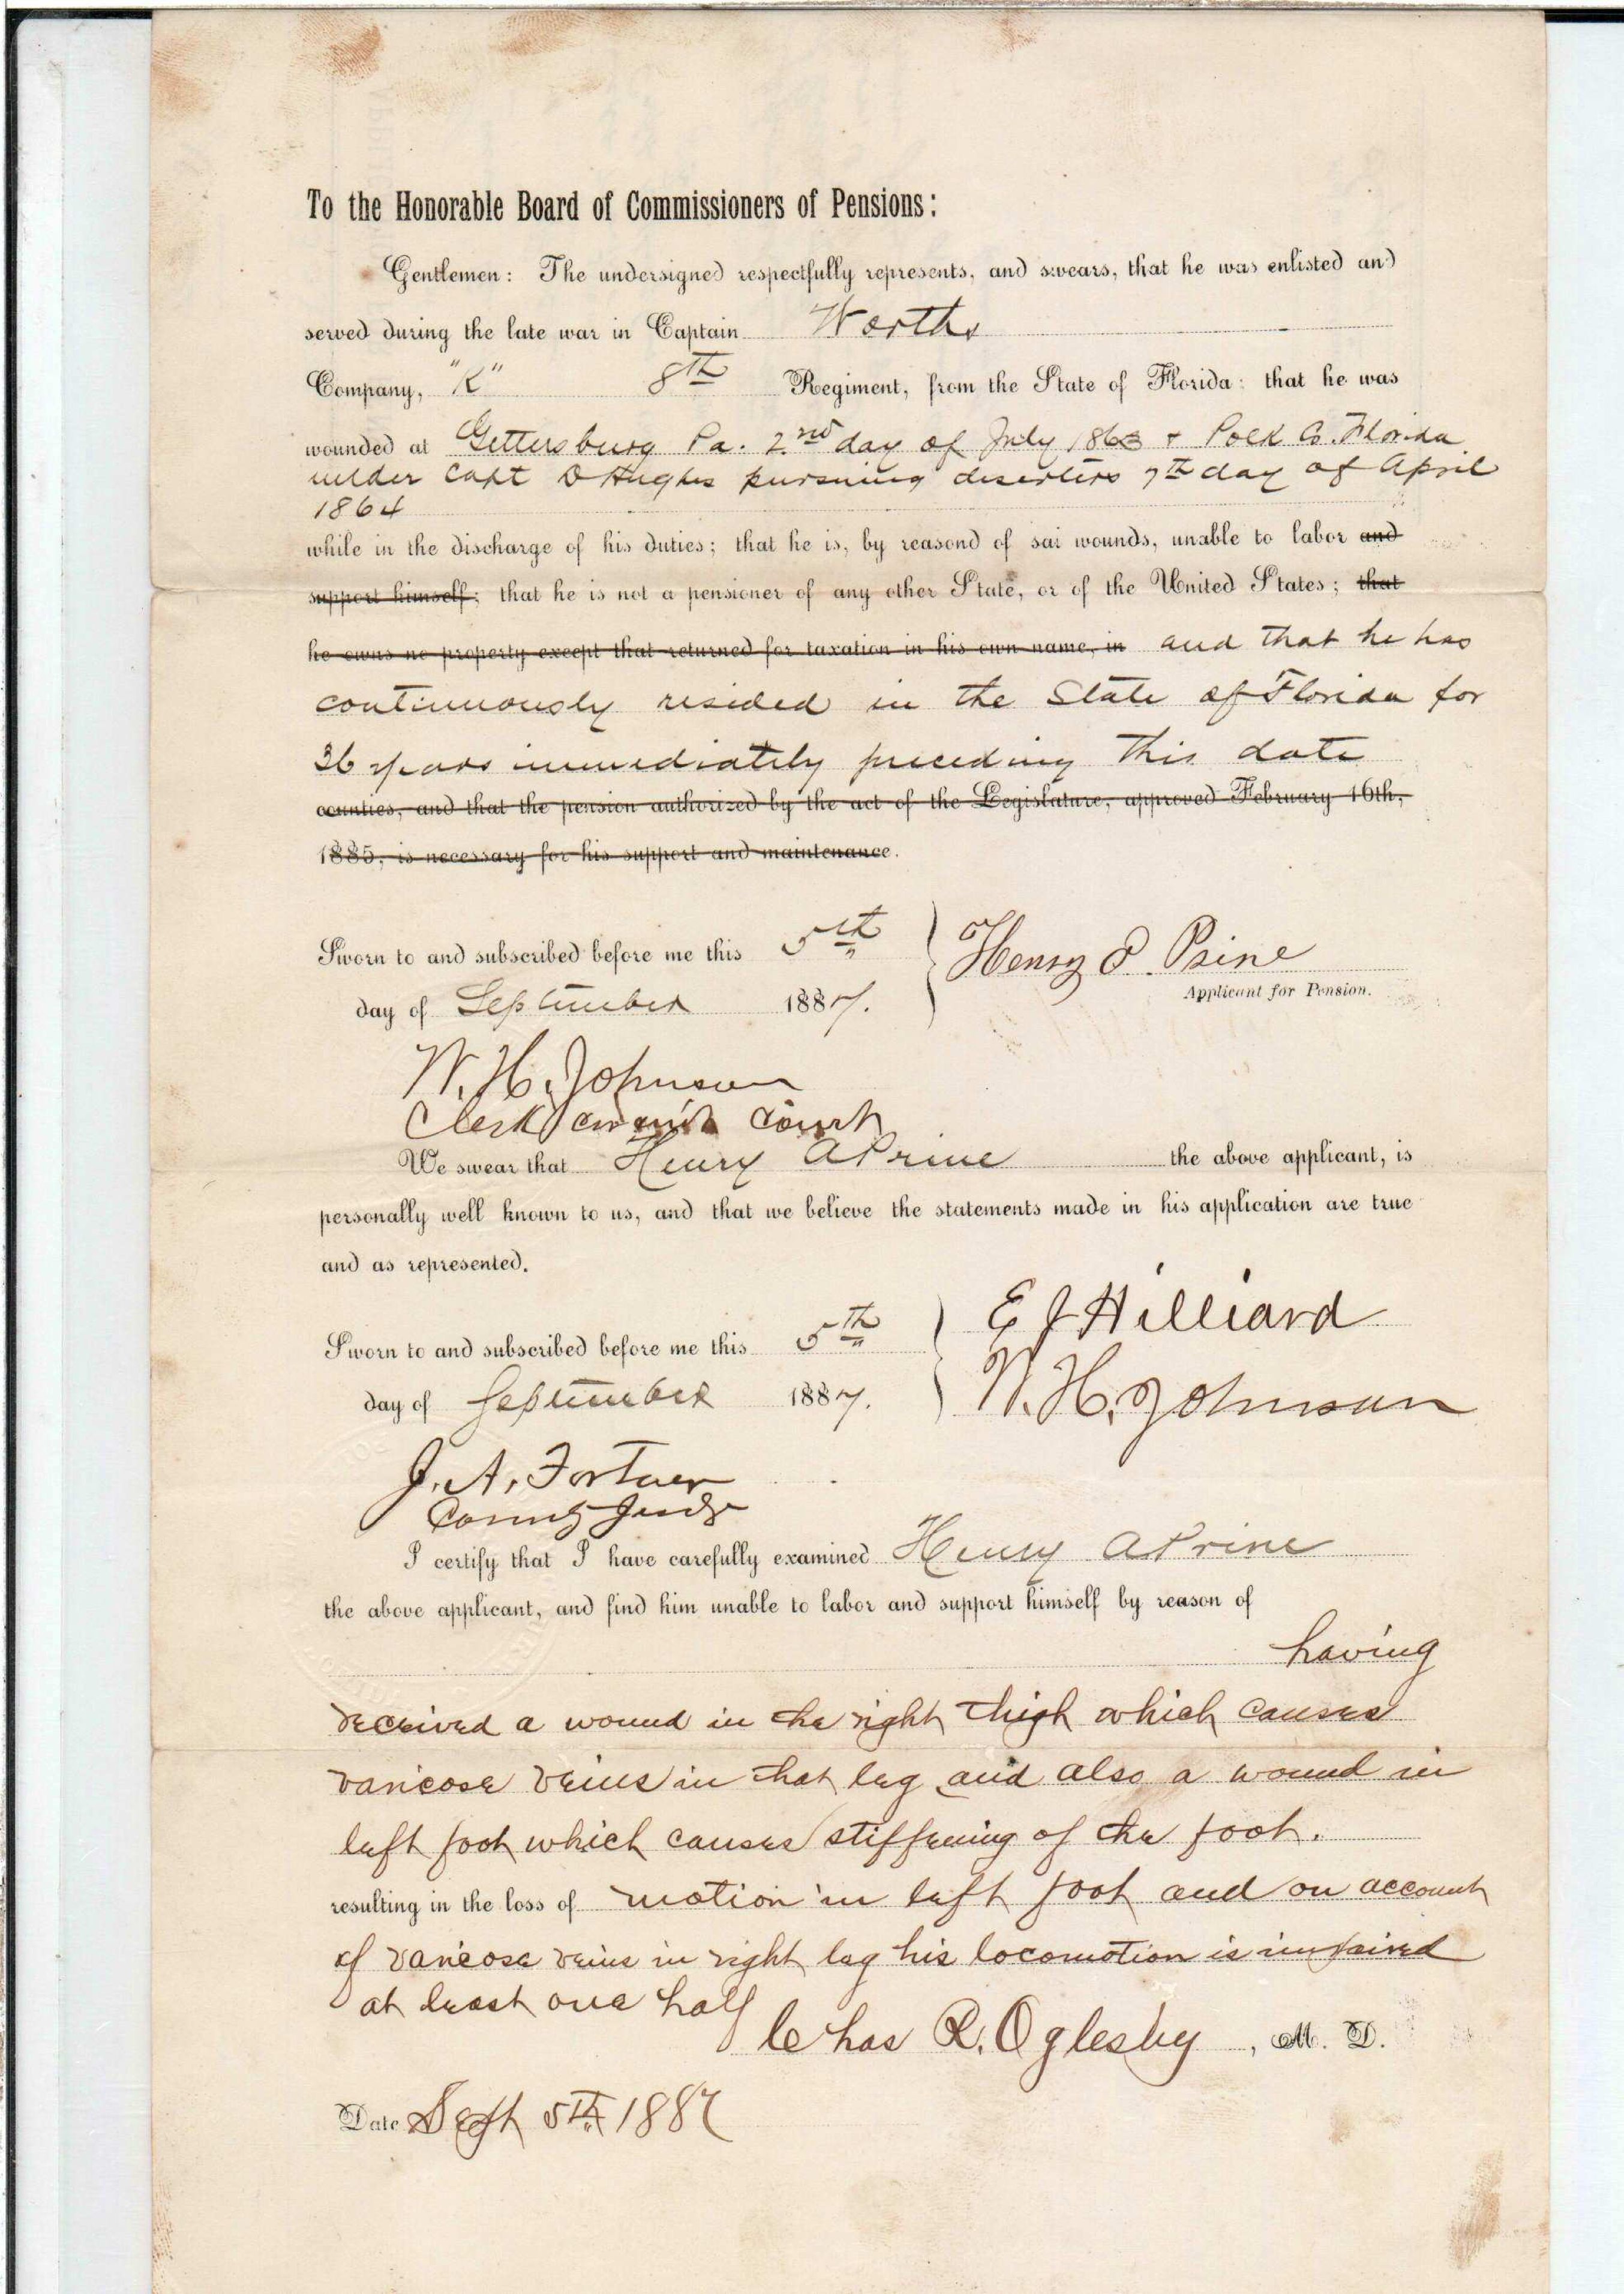 To the Honorable Board of Commissioners of Pensions:
Gentlemen: The undersigned respectfully represents, and swears, that he was enlisted and
served during the late war in Captain Worths
Company, "K" 8th Regiment, from the State of Florida: that he was
wounded at Gettersburg Pa. 2nd day of July 1863 & Polk Co. Florida
under Capt D Hughes pursuing deserters 7th day of April
1864
while in the discharge of his duties; that he is, by reasond of sai wounds, unable to labor and
support himself; that he is not a pensioner of any other State, or of the United States; that
he owns no property except that returned for taxation in his own name, in and that he has
continuously resided in the State of Florida for
36 years immediately preceding this date
counties, and that the pension authorized by the act of the Legislature, approved February 16th,
1885, is necessary for his support and maintenance.
Sworn to and subscribed before me this 5th Henry Prine
Applicant for Pension.
day of September 1887.
W. H. Johnson
Clerk Circuit Court
We swear that Henry A Prine the above applicant, is
personally well known to us, and that we believe the statements made in his application are true
and as represented.
E J Hilliard
Sworn to and subscribed before me this 5th
day of September 1887. W. H. Johnson
J. A. Fortner
County Judge
I certify that I have carefully examined Henry A Prine
the above applicant, and find him unable to labor and support himself by reason of
having
received a wound in the right thigh which causes
varicose veins in that leg and also a wound in
left foot which causes stiffening of the foot.
resulting in the loss of motion in left foot and on account
of varicose veins in right leg his locomotion is impaired
at least one half
Chas R. Oglesby, M. D.
Date Sept 5th 1887